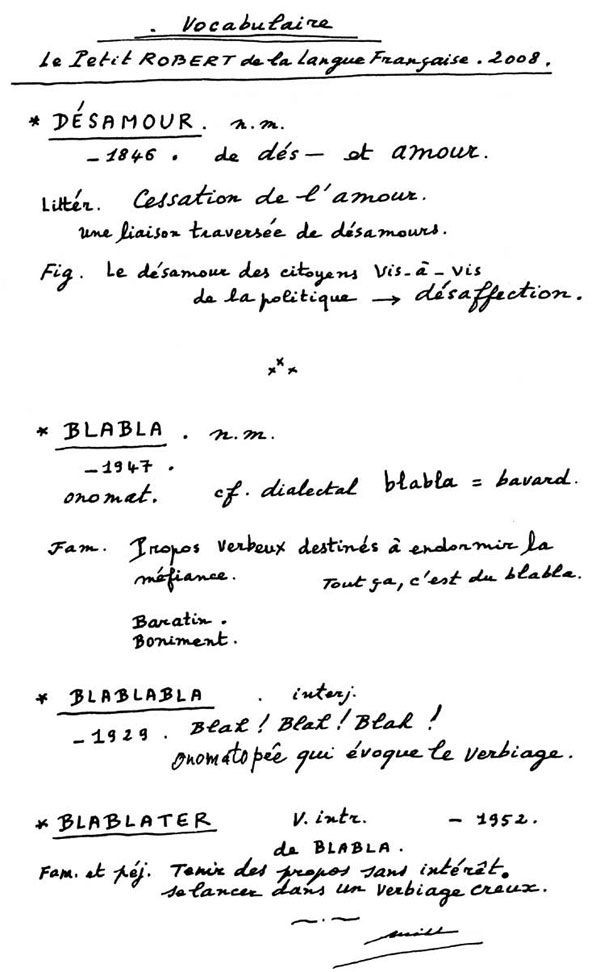 . Vocabulaire
Le Petit ROBERT de la langue Française. 2008.
* DÉSAMOUR. n.m.
– 1846. de dés – et amour.
Littér. Cessation de l'amour.
une liaison traversée de désamours.
Fig. Le désamour des citoyens vis-à-vis
de la politique → désaffection.
* BLABLA. n.m.
– 1947.
onomat. cf. dialectal blabla = bavard.
Fam. Propos verbeux destinés à endormir la
méfiance. Tout ça, c'est du blabla.
Baratin.
Boniment.
* BLABLABLA. interj.
– 1929. Blah! Blah! Blah!
Onomatopée qui évoque le verbiage.
* BLABLATER V. intr. – 1952.
de BLABLA.
Fam. et péj. Tenir des propos sans intérêt.
se lancer dans un verbiage creux.